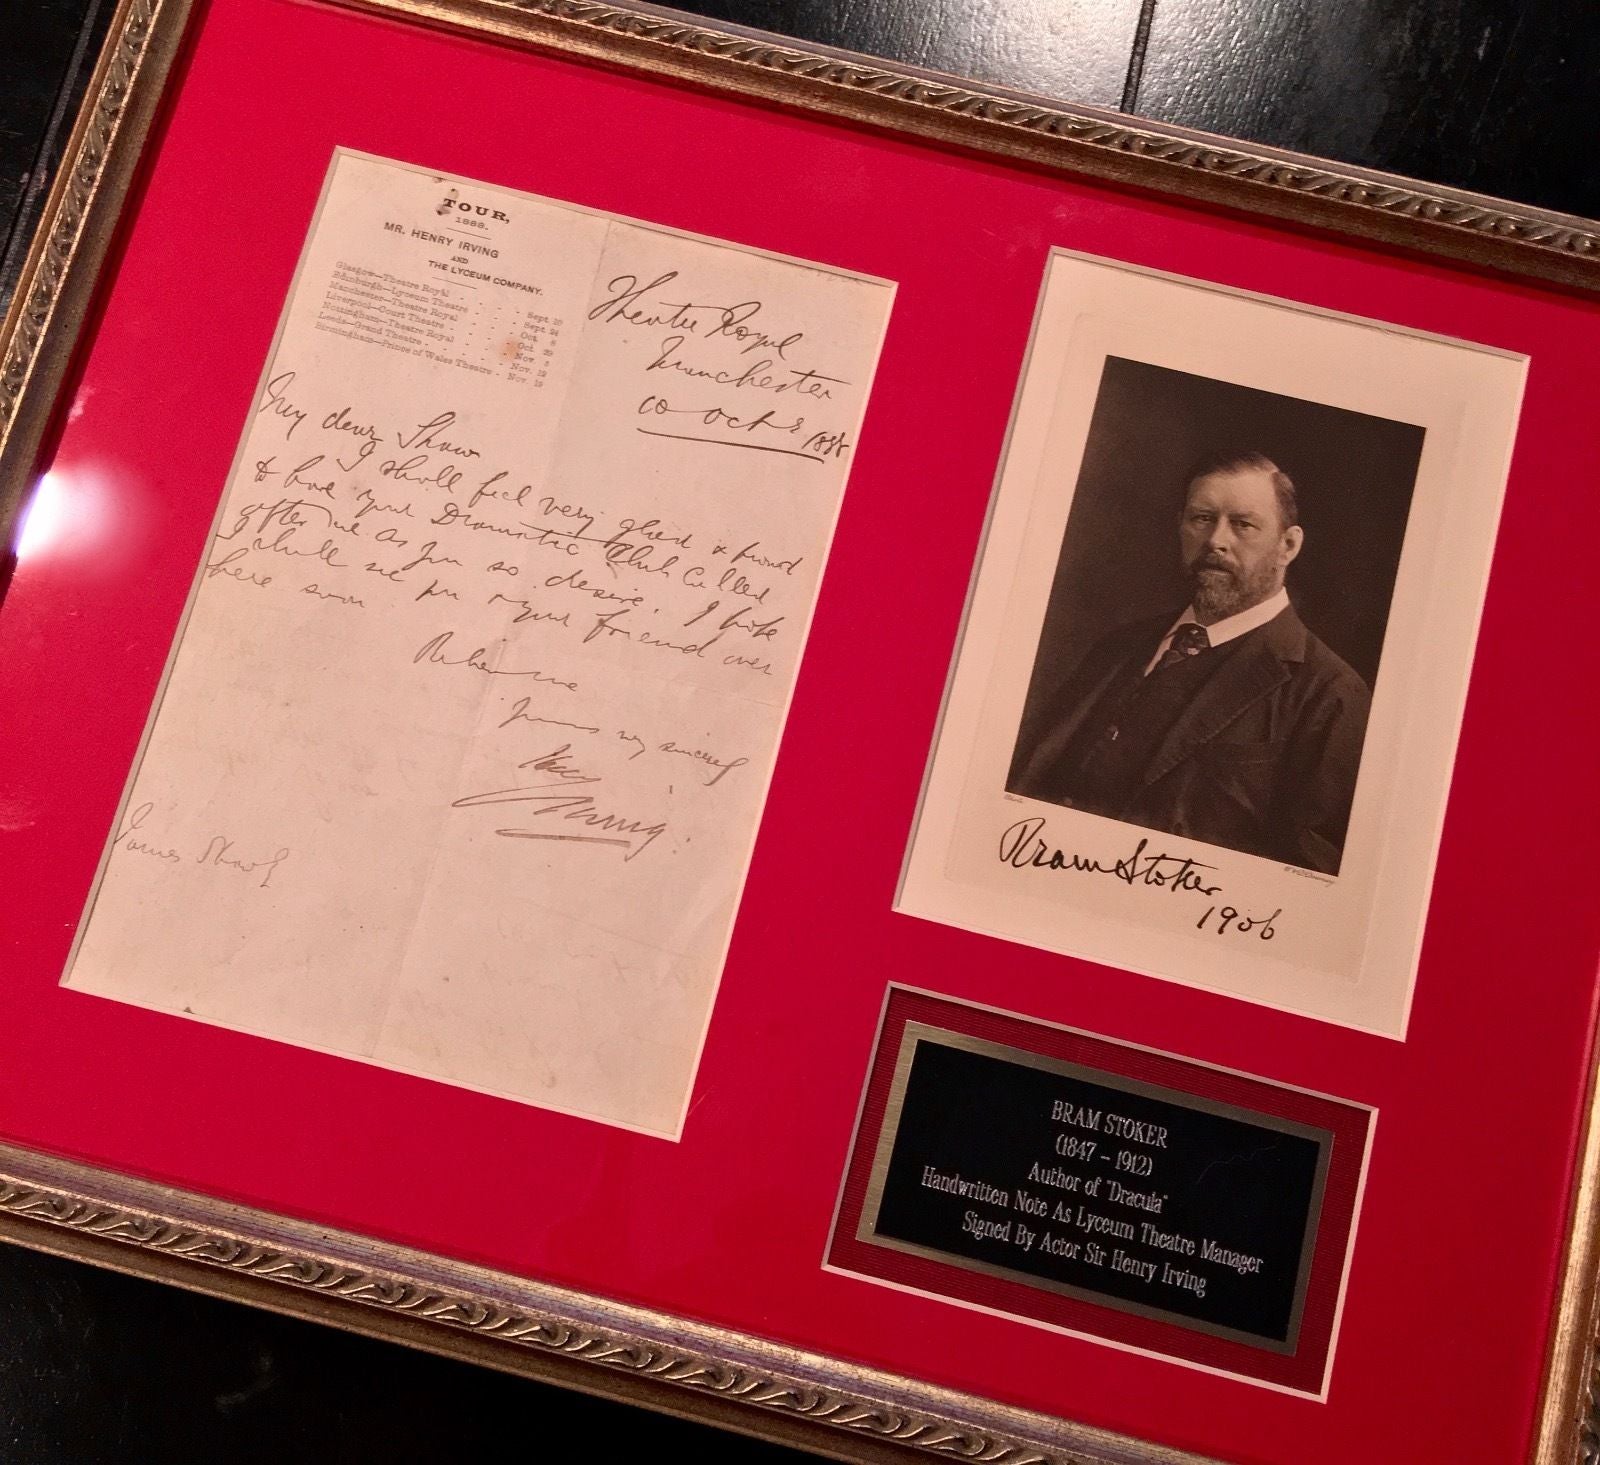 TOUR,
1888.
MR. HENRY IRVING
AND
THE LYCEUM COMPANY.
Glasgow—Theatre Royal - - - - Sept. 10
Edinburgh—Lyceum Theatre - - - Sept. 24
Manchester—Theatre Royal - - - Oct. 8
Liverpool—Court Theatre - - - Oct. 29
Nottingham—Theatre Royal - - - Nov. 5
Leeds—Grand Theatre - - - Nov. 12
Birmingham—Prince of Wales Theatre - Nov. 19
Theatre Royal
Manchester
Oct 1888
My dear Shaw
I shall feel very glad & proud
to have your Dramatic Club called
after me as you so desire. I hope
I shall see you & your friend over
here soon
Believe me
Yours very sincerely
Henry
Irving
James Shaw
Bram Stoker
1906
BRAM STOKER
(1847 - 1912)
Author of "Dracula"
Handwritten Note As Lyceum Theatre Manager
Signed By Actor Sir Henry Irving